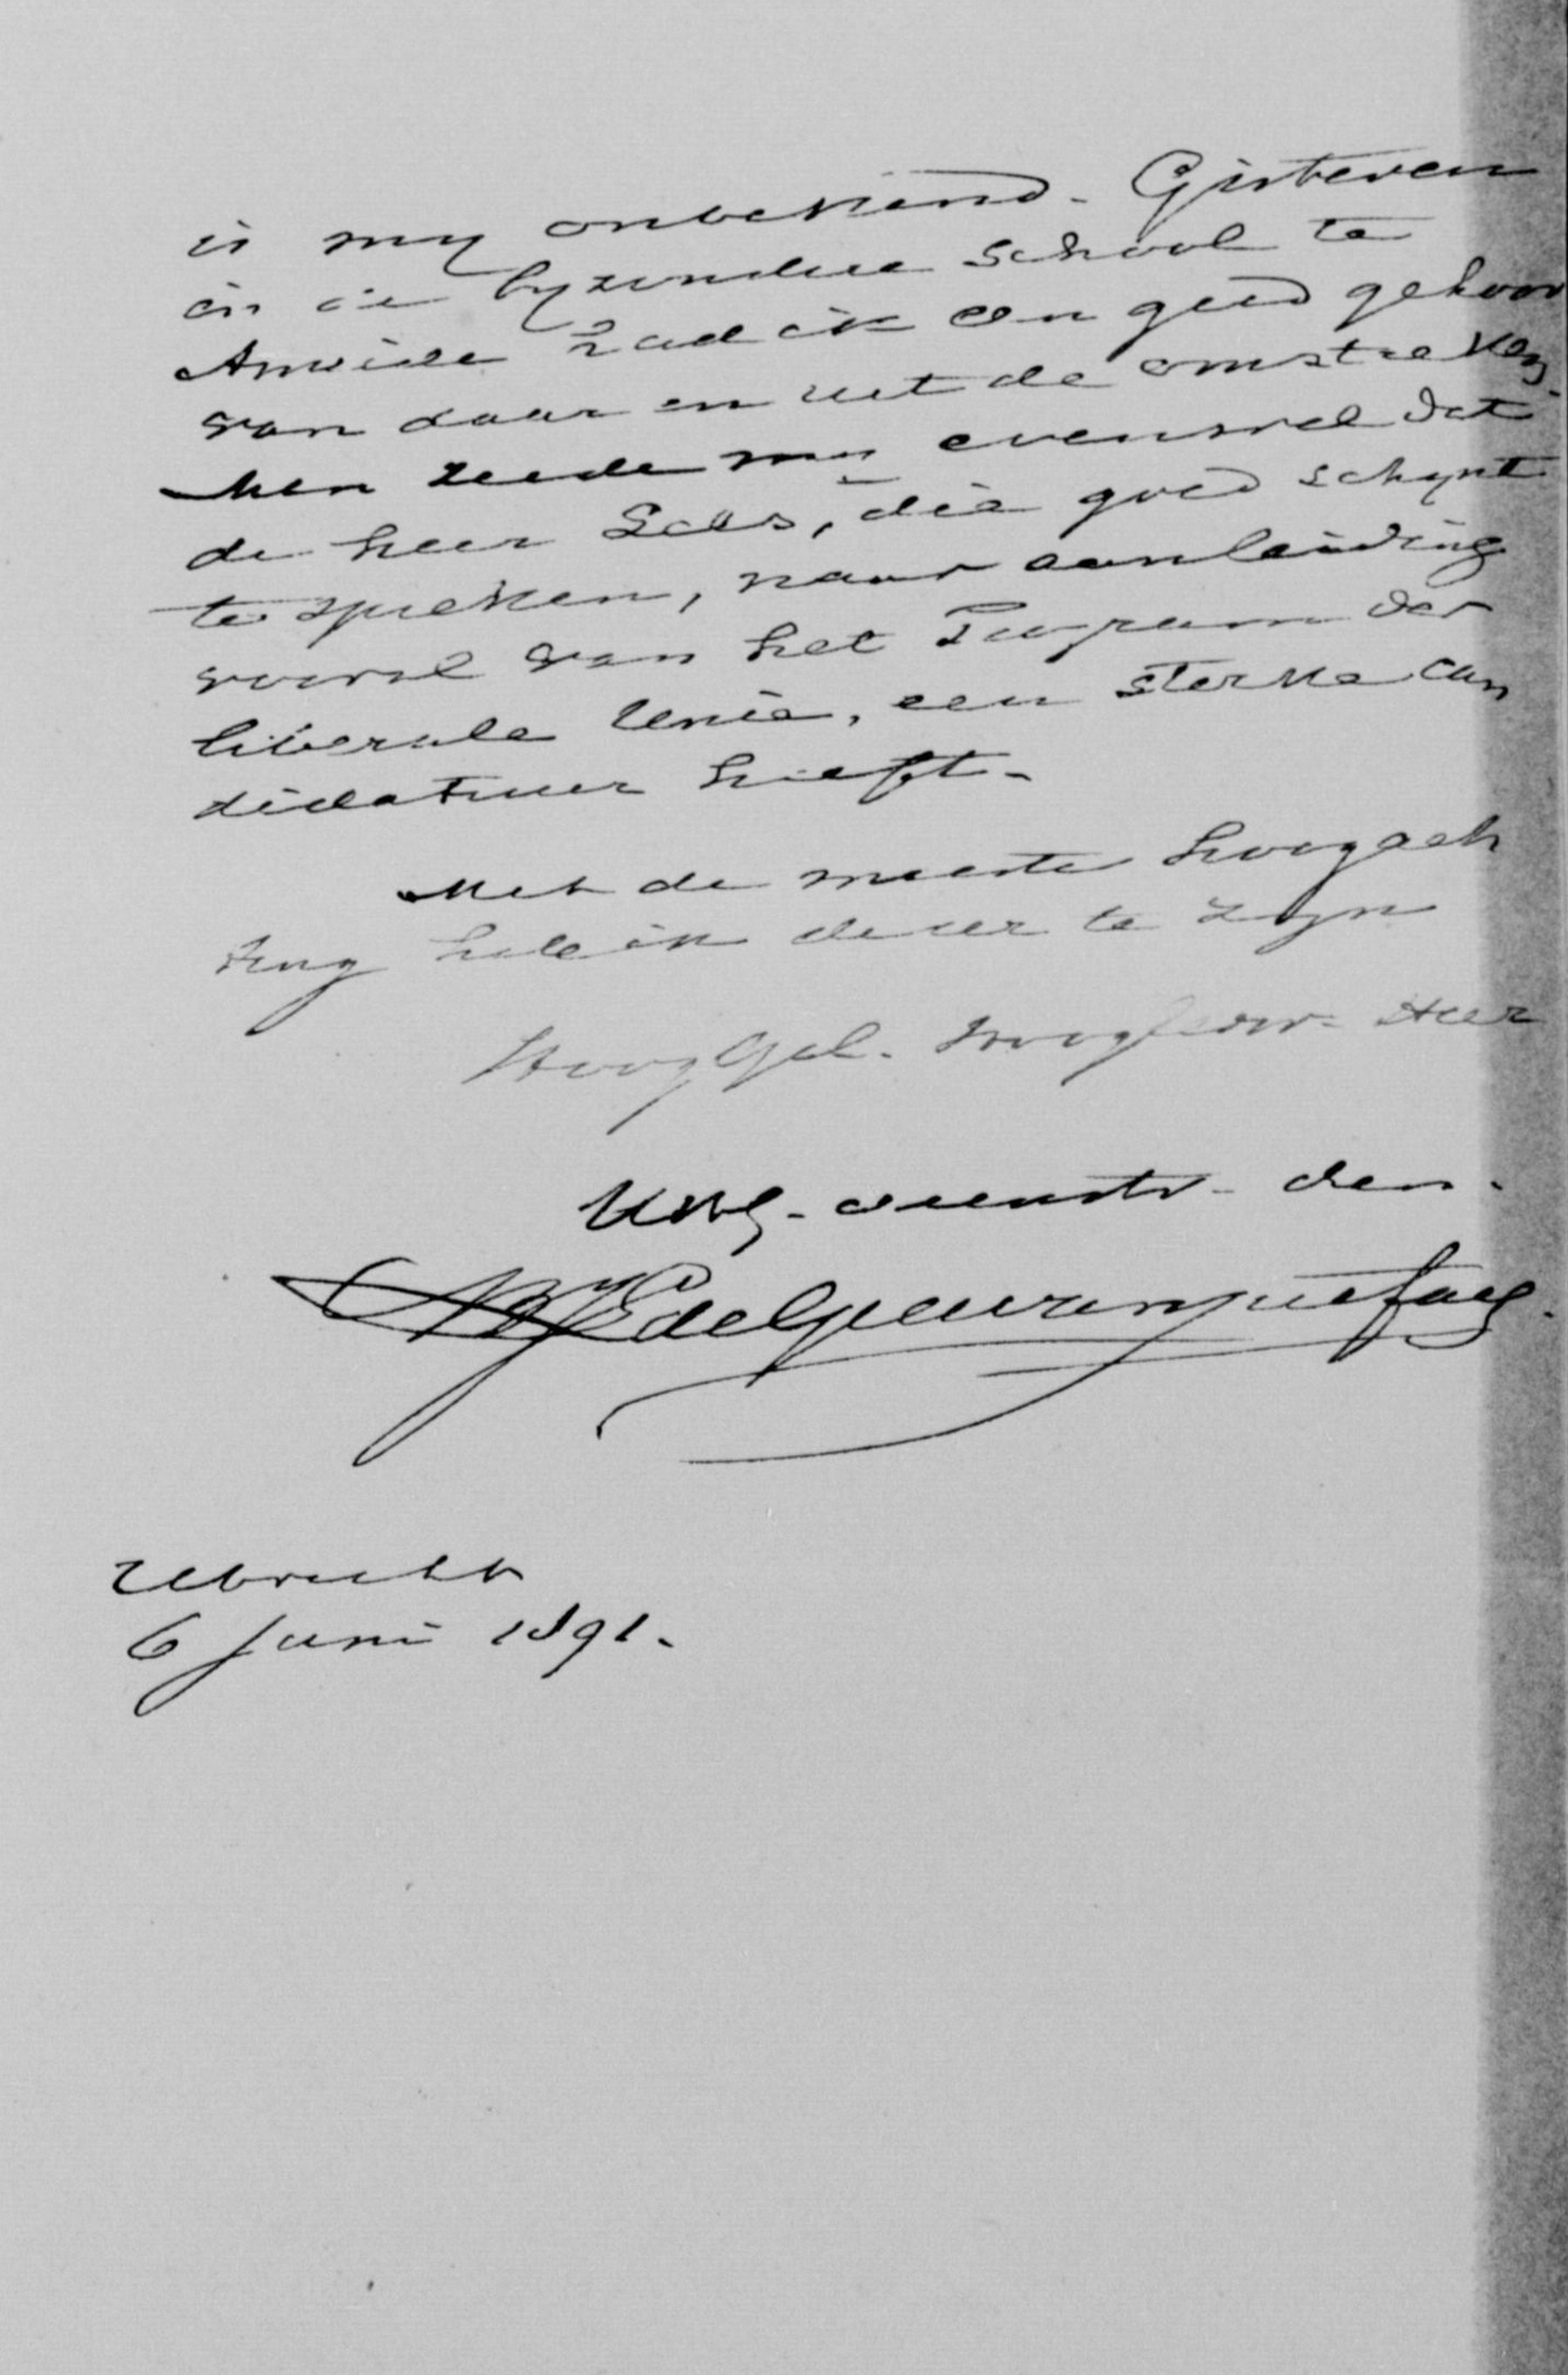 is my onbekend. Gisteren
in de byzondere School te
Ameide had ik een goed gehoor
van daar en uit de omstreken.
Men zeide my evenwel dat
de heer Sees, die goed schynt
te spreken, naar aanleiding
vooral van het Program der
liberale Unie, een sterke can
didatuur heeft.
Met de meeste hoogach
ting heb ik de eer te zyn
HoogGel. Hooggeb. Heer
UHG. dienstv. den.
Utrecht
6 Juni 1891.